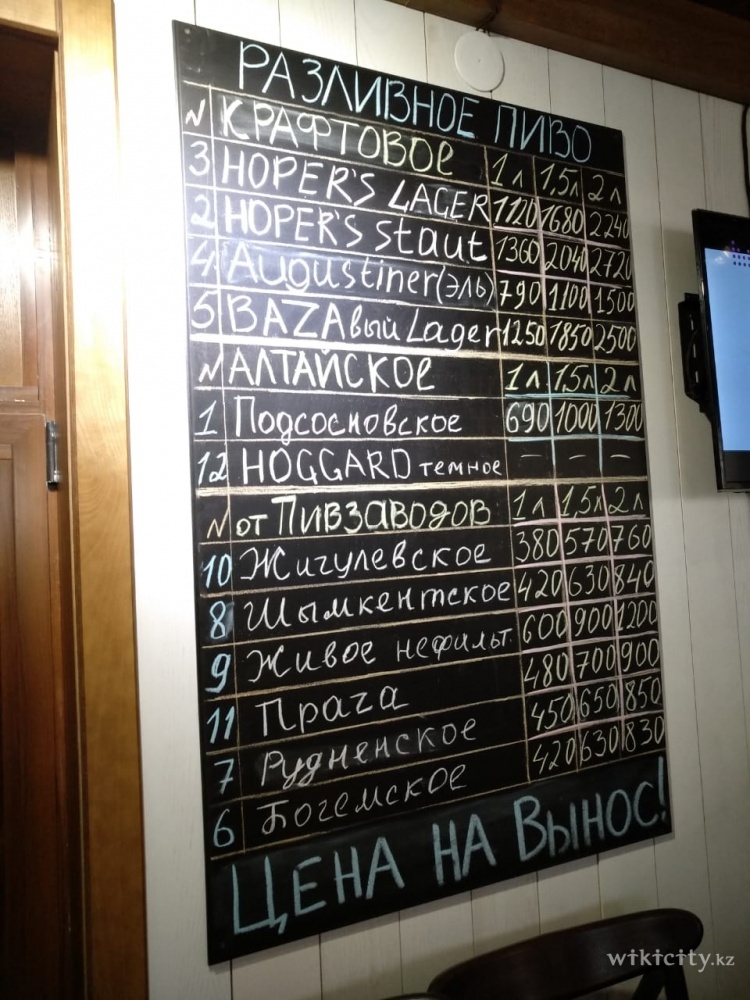 РАЗЛИВНОЕ ПИВО
N КРАФТОВОЕ 1 л 1,5 л 2 л
3 HOPER'S LAGER 1120 1680 2240
2 HOPER'S Staut 1360 2040 2720
4 Augustiner (эль) 790 1100 1500
5 BAZAвый Lager 1250 1850 2500
N АЛТАЙСКОЕ 1 л 1,5 л 2 л
1 Подсосновское 690 1000 1300
12 HOGGARD темное — — —
N от Пивзаводов 1 л 1,5 л 2 л
10 Жигулевское 380 570 760
8 Шымкентское 420 630 840
9 Живое нефильт. 600 900 1200
11 Прага 480 700 900
7 Рудненское 450 650 850
6 Богемское 420 630 830
ЦЕНА НА ВЫНОС!
wikicity.kz